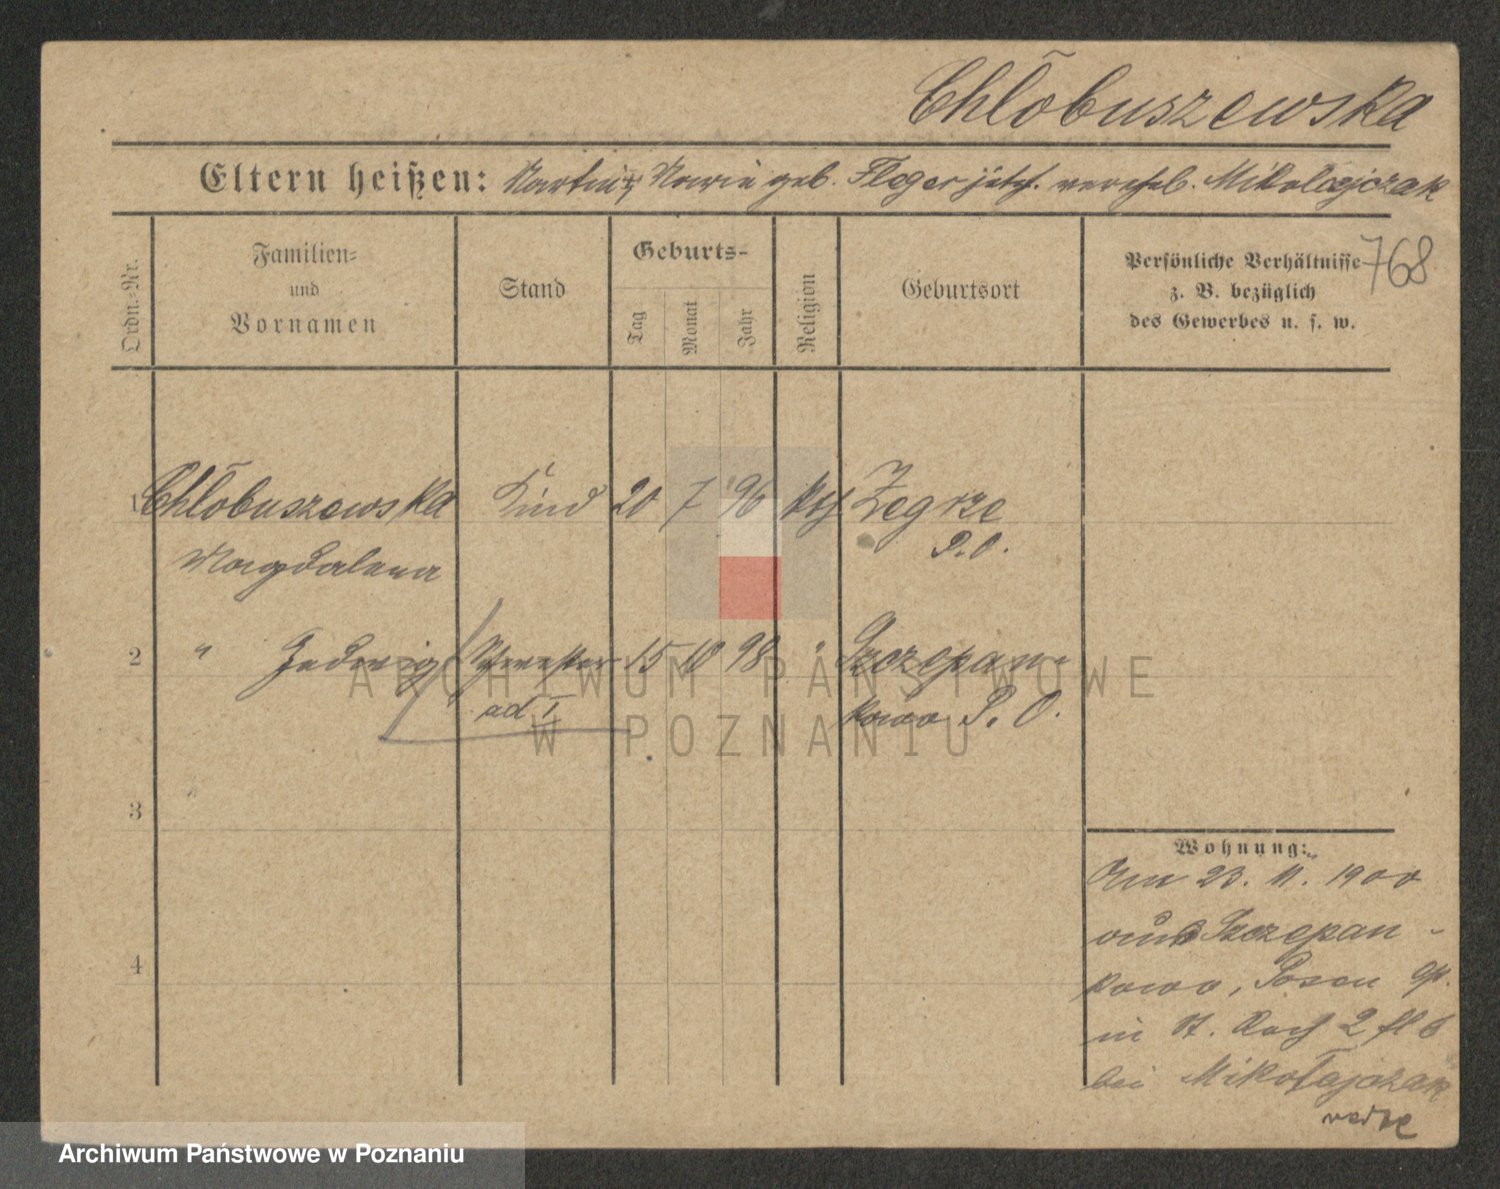 Chłobuszewska
Eltern heißen: Martin, Marie geb. Fleger jetzt. verehel. Mikołajczak
768
Ordn.-Nr.
Familien-
und
Vornamen
Stand
Geburts-
Tag
Monat
Jahr
Religion
Geburtsort
Persönliche Verhältnisse
z. B. bezüglich
des Gewerbes u. s. w.
1 Chłobuszewska Kind 20 7 96 kth Zegrze
P. O.
Magdalena
2 " Hedwig Schwester 15 10 98 " Szczepan-
ad 1 kowo P. O.
3
4
Wohnung:
Am 23. 11. 1900
aus Szczepan-
kowo, Posen
in St. Roch 2
bei Mikołajczak
ARCHIWUM PAŃSTWOWE
W POZNANIU
Archiwum Państwowe w Poznaniu